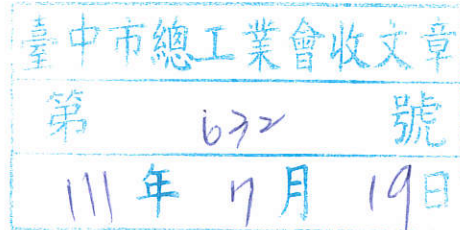 臺中市總工業會收文章
第 632 號
111年 7月 19日